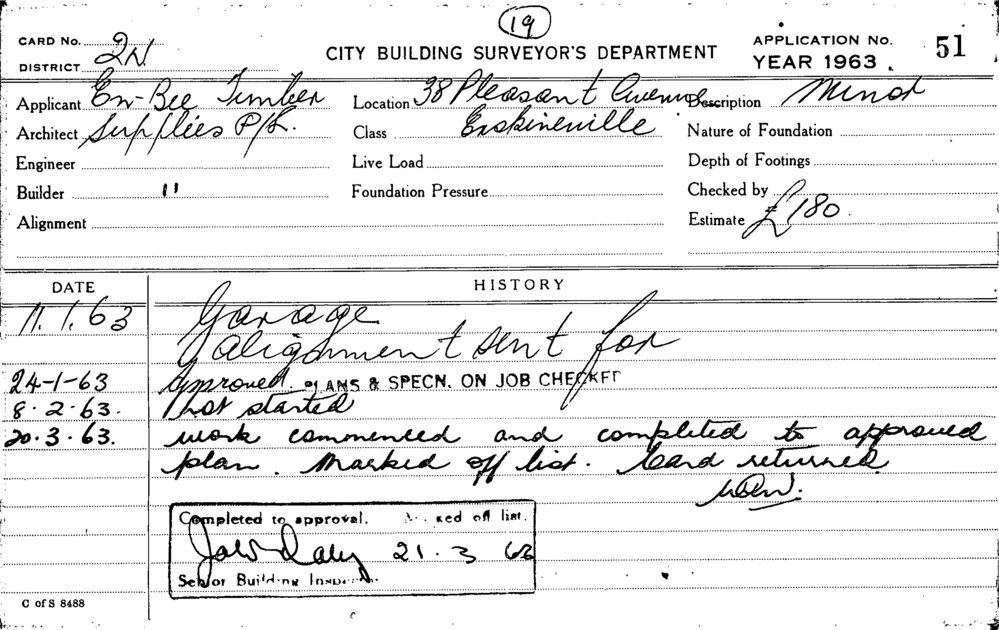 19
CARD No. 2N CITY BUILDING SURVEYOR'S DEPARTMENT APPLICATION No. 51
DISTRICT YEAR 1963
Applicant En-Bee Timber Location 38 Pleasant Avenue Description Minor
Architect Supplies P/L. Class Erskineville Nature of Foundation
Engineer Live Load Depth of Footings
Builder " Foundation Pressure Checked by
Alignment Estimate £180
DATE HISTORY
11.1.63 Garage
alignment sent for
24-1-63 Approved. PLANS & SPECN. ON JOB CHECKET
8.2.63. Not started
20.3.63. work commenced and completed to approved
plan. Marked off list. Card returned
Completed to approval. ked off list.
21.3.63
Senior Building Inspector.
C of S 8488